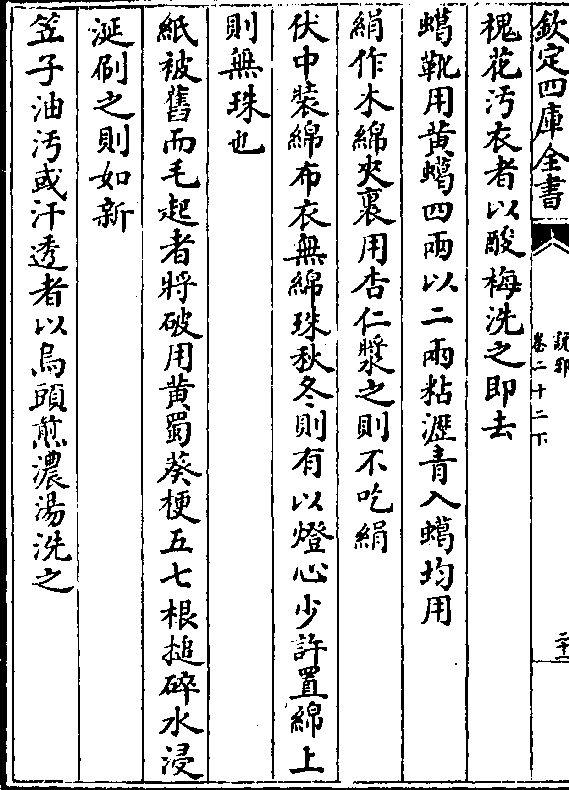 欽定四庫全書
說郛
卷二十二下
二十二
槐花汚衣者以酸梅洗之即去
蠟靴用黄蠟四兩以二兩粘瀝青入蠟均用
絹作木綿夾裏用杏仁漿之則不吃絹
伏中裝綿布衣無綿珠秋冬則有以燈心少許置綿上
則無珠也
紙被舊而毛起者將破用黄蜀葵梗五七根搥碎水浸
涎刷之則如新
笠子油汚或汗透者以烏頭煎濃湯洗之